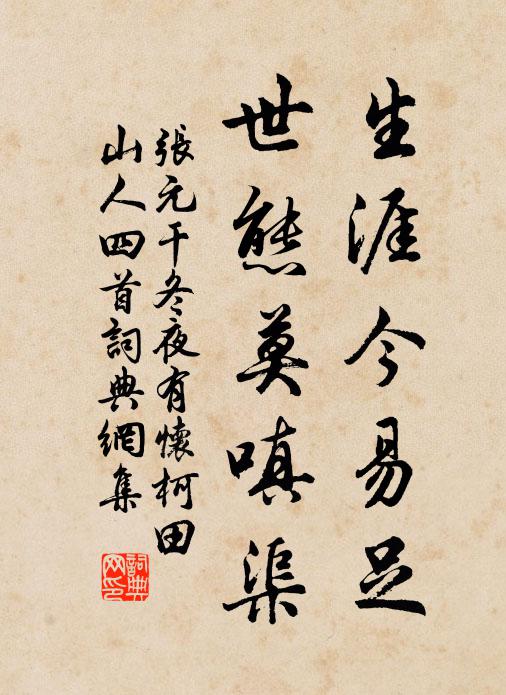 生涯今易足
世態莫嗔渠
張元干冬夜有懷柯田
山人四首詞典網集
詞典
网印